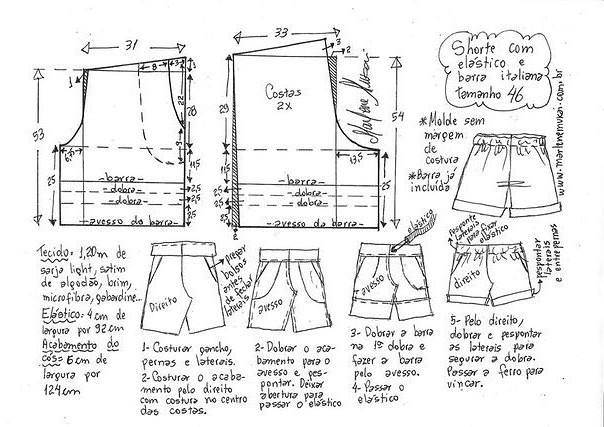 31
33
8
3
3
2
1
Costas
2X
Marlene Mukai
Shorte com
elástico e
barra italiana
tamanho 46
www.marlenemukai.com.br
*Molde sem
margem
de
costura
*Barra já
incluída
53
28
22
28
29
54
9
6,5
13,5
25
11,5
11,5
25
-barra-
-dobra-
-dobra-
2,5
2,5
-avesso da barra-
-barra-
-dobra-
-dobra-
2,5
2,5
-avesso da barra-
2
Tecido= 1,20m de
sarja light, satim
de algodão, brim,
microfibra, gabardine...
Elástico= 4cm de
largura por 92cm
Acabamento do
cós= 6cm de
largura por
124cm
Direito
pregar
bolsos
antes
de fechar
laterais
avesso
elástico
avesso
pesponte
laterais
para fixar
elástico
direito
pespontar
laterais
e entrepernas
1- Costurar gancho,
pernas e laterais.
2- Costurar o acaba-
mento pelo direito
com costura no centro
das costas.
2- Dobrar o aca-
bamento para o
avesso e pes-
pontar. Deixar
abertura para
passar o elástico
3- Dobrar a barra
na 1ª dobra e
fazer a barra
pelo avesso.
4- Passar o
elástico
5- Pelo direito,
dobrar e pespontar
as laterais para
segurar a dobra.
Passar a ferro para
vincar.